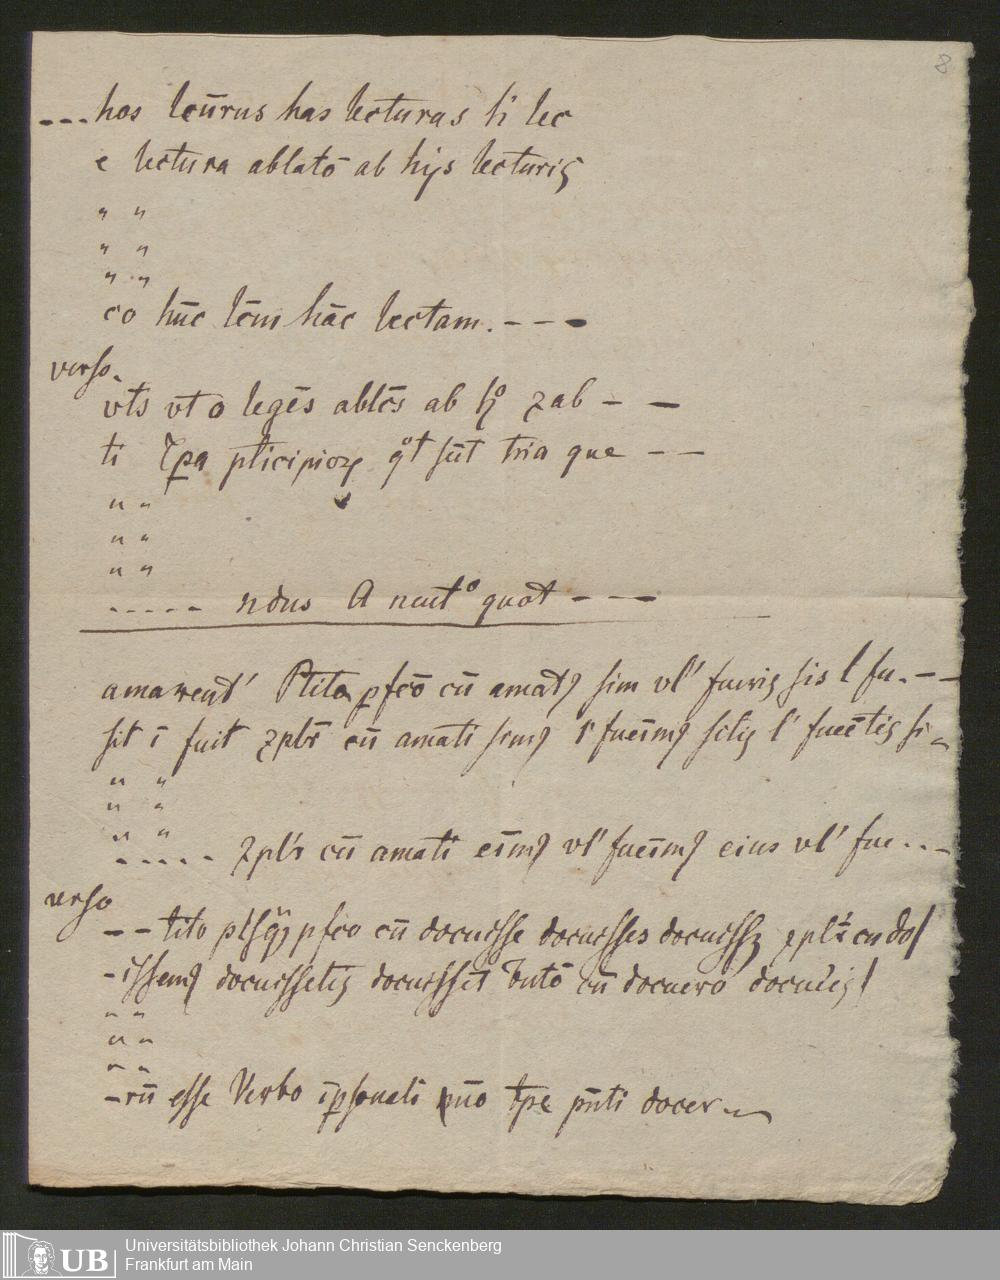 8
---hos lcūrus has lecturas li lec
e lectura ablatō ab hijs lecturis
" "
" "
" "
co hūc lcm̄ hāc lectam. - - -
verso.
vts vt o legēs ablēs ab ho zab - -
ti Tpa pticipioꝝ qt sūt tria que - -
" "
" "
" "
..... ndus A neuto quot - - -
amarent' Ptito pfcō cū amatꝰ sim vl' fueris sis l fu. - -
sit l fuit zplr̄ cū amati simꝰ l' fueīmꝰ sitis l' fueētis si-
" "
" "
" "
..... zplr cū amati eīmꝰ vl' fueīmꝰ eius vl' fue...
verso
- - tito ptsqꝫ pfco cū docuisse docuisses docuissꝫ zplr cu do
-issemꝰ docuissetis docuissēt Futō cū docuero docueis
" "
" "
" "
-rū esse Verbo īpsonali mo tpe pn̄ti docer -
Universitätsbibliothek Johann Christian Senckenberg
Frankfurt am Main
UB